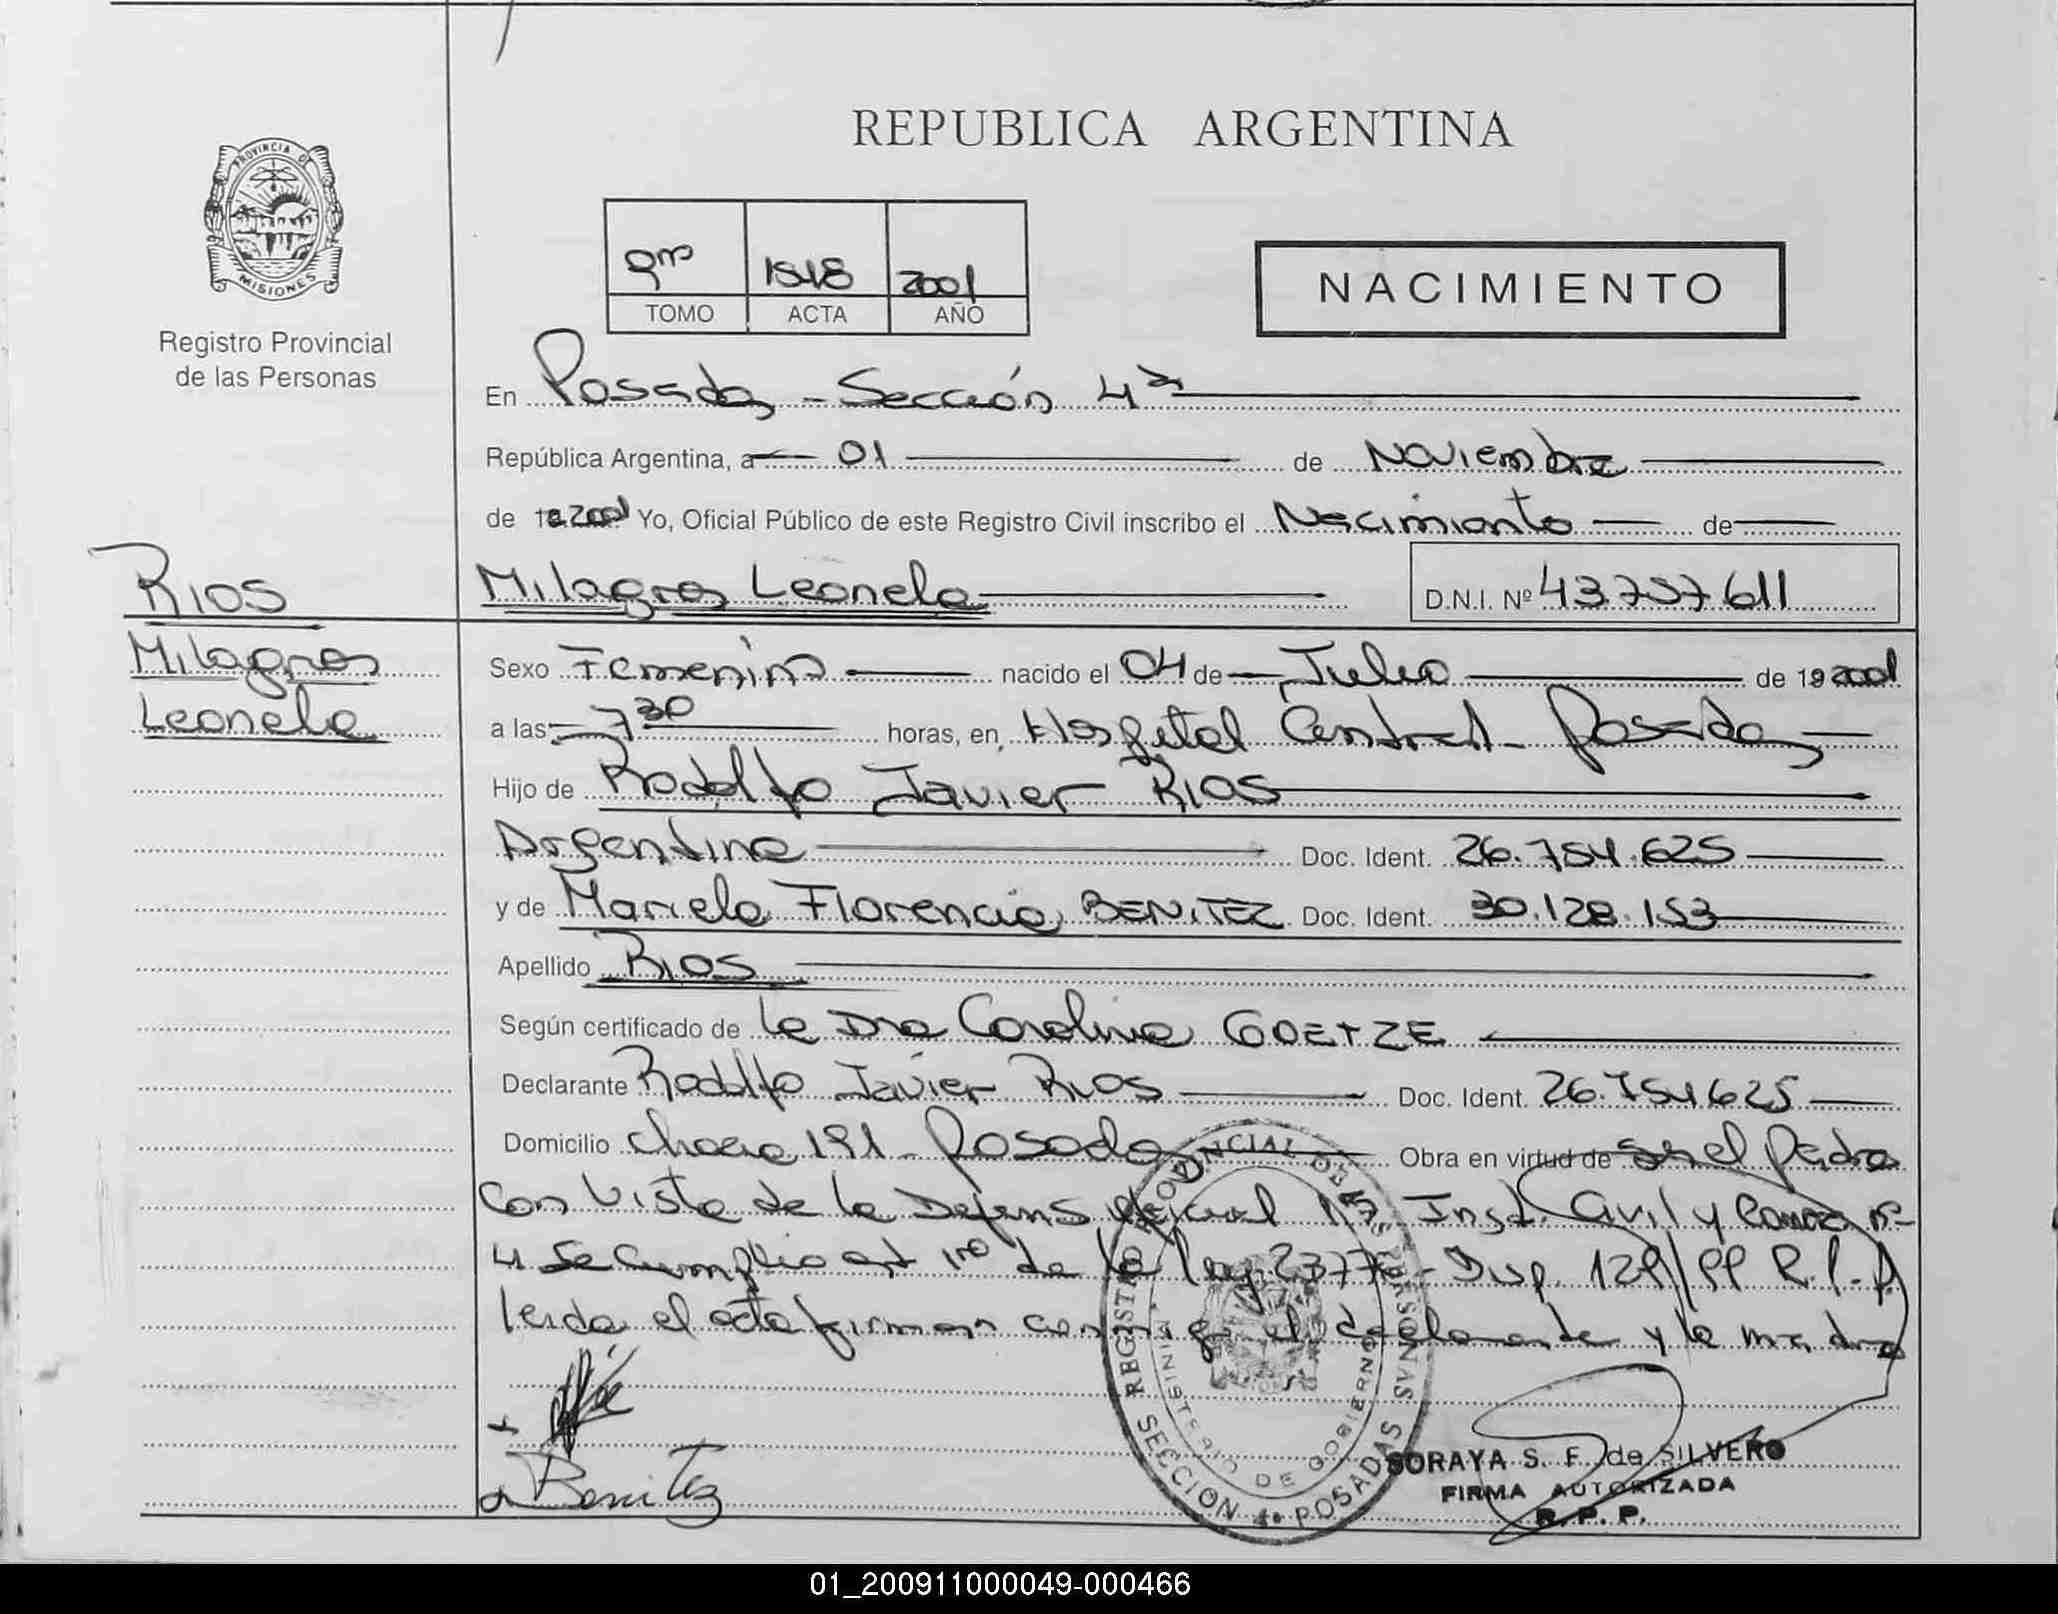 PROVINCIA DE
MISIONES
Registro Provincial
de las Personas
REPUBLICA ARGENTINA
1518 2001
TOMO ACTA AÑO
NACIMIENTO
En Posadas - Sección 4ª
República Argentina, a 01 de Noviembre
de 2001 Yo, Oficial Público de este Registro Civil inscribo el Nacimiento de
RIOS Milagros Leonela D.N.I. Nº 43.757.611
Milagros
Leonela
Sexo Femenino nacido el 04 de Julio de 19 2001
a las 7 30 horas, en Hospital Central - Posadas
Hijo de Rodolfo Javier RIOS
Argentina Doc. Ident. 26.754.625
y de Mariela Florencia BENITEZ Doc. Ident. 30.128.153
Apellido RIOS
Según certificado de la Dra Carolina GOETZE
Declarante Rodolfo Javier RIOS Doc. Ident. 26.754625
Domicilio chacra 191 - Posadas Obra en virtud de ser el padre
Con vista de la Inst. Civil y
4 se cumplio art 1ro de la ley 23776 - Disp. 129/99 R.P.P.
leida el acta firman conmigo el declarante y la madre
Benitez
REGISTRO PROVINCIAL DE LAS PERSONAS
MINISTERIO DE GOBIERNO
SECCION 4ª POSADAS
SORAYA S. F. de SILVERO
FIRMA AUTORIZADA
R. P. P.
01_200911000049-000466